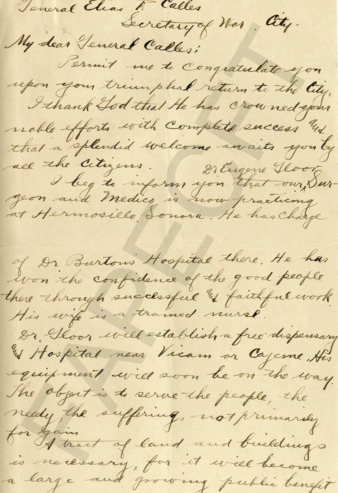 General Elias P. Calles
Secretary of War. City.
My dear General Calles:
Permit me to congratulate you
upon your triumphal return to the City.
I thank God that He has crowned your
noble efforts with complete success and
that a splendid welcome awaits you by
all the citizens.
Dr Eugene Gloor
I beg to inform you that our, Sur-
geon and Medico is now practicing
at Hermosillo, Sonora. He has charge
of Dr Burtons Hospital there. He has
won the confidence of the good people
there through successful & faithful work.
His wife is a trained nurse.
Dr. Gloor will establish a free dispensary
& Hospital near Vicam or Cajeme. His
equipment will soon be on the way.
The object is to serve the people, the
needy the suffering, not primarily
for gain
A tract of land and buildings
is necessary, for it will become
a large and growing public benefit